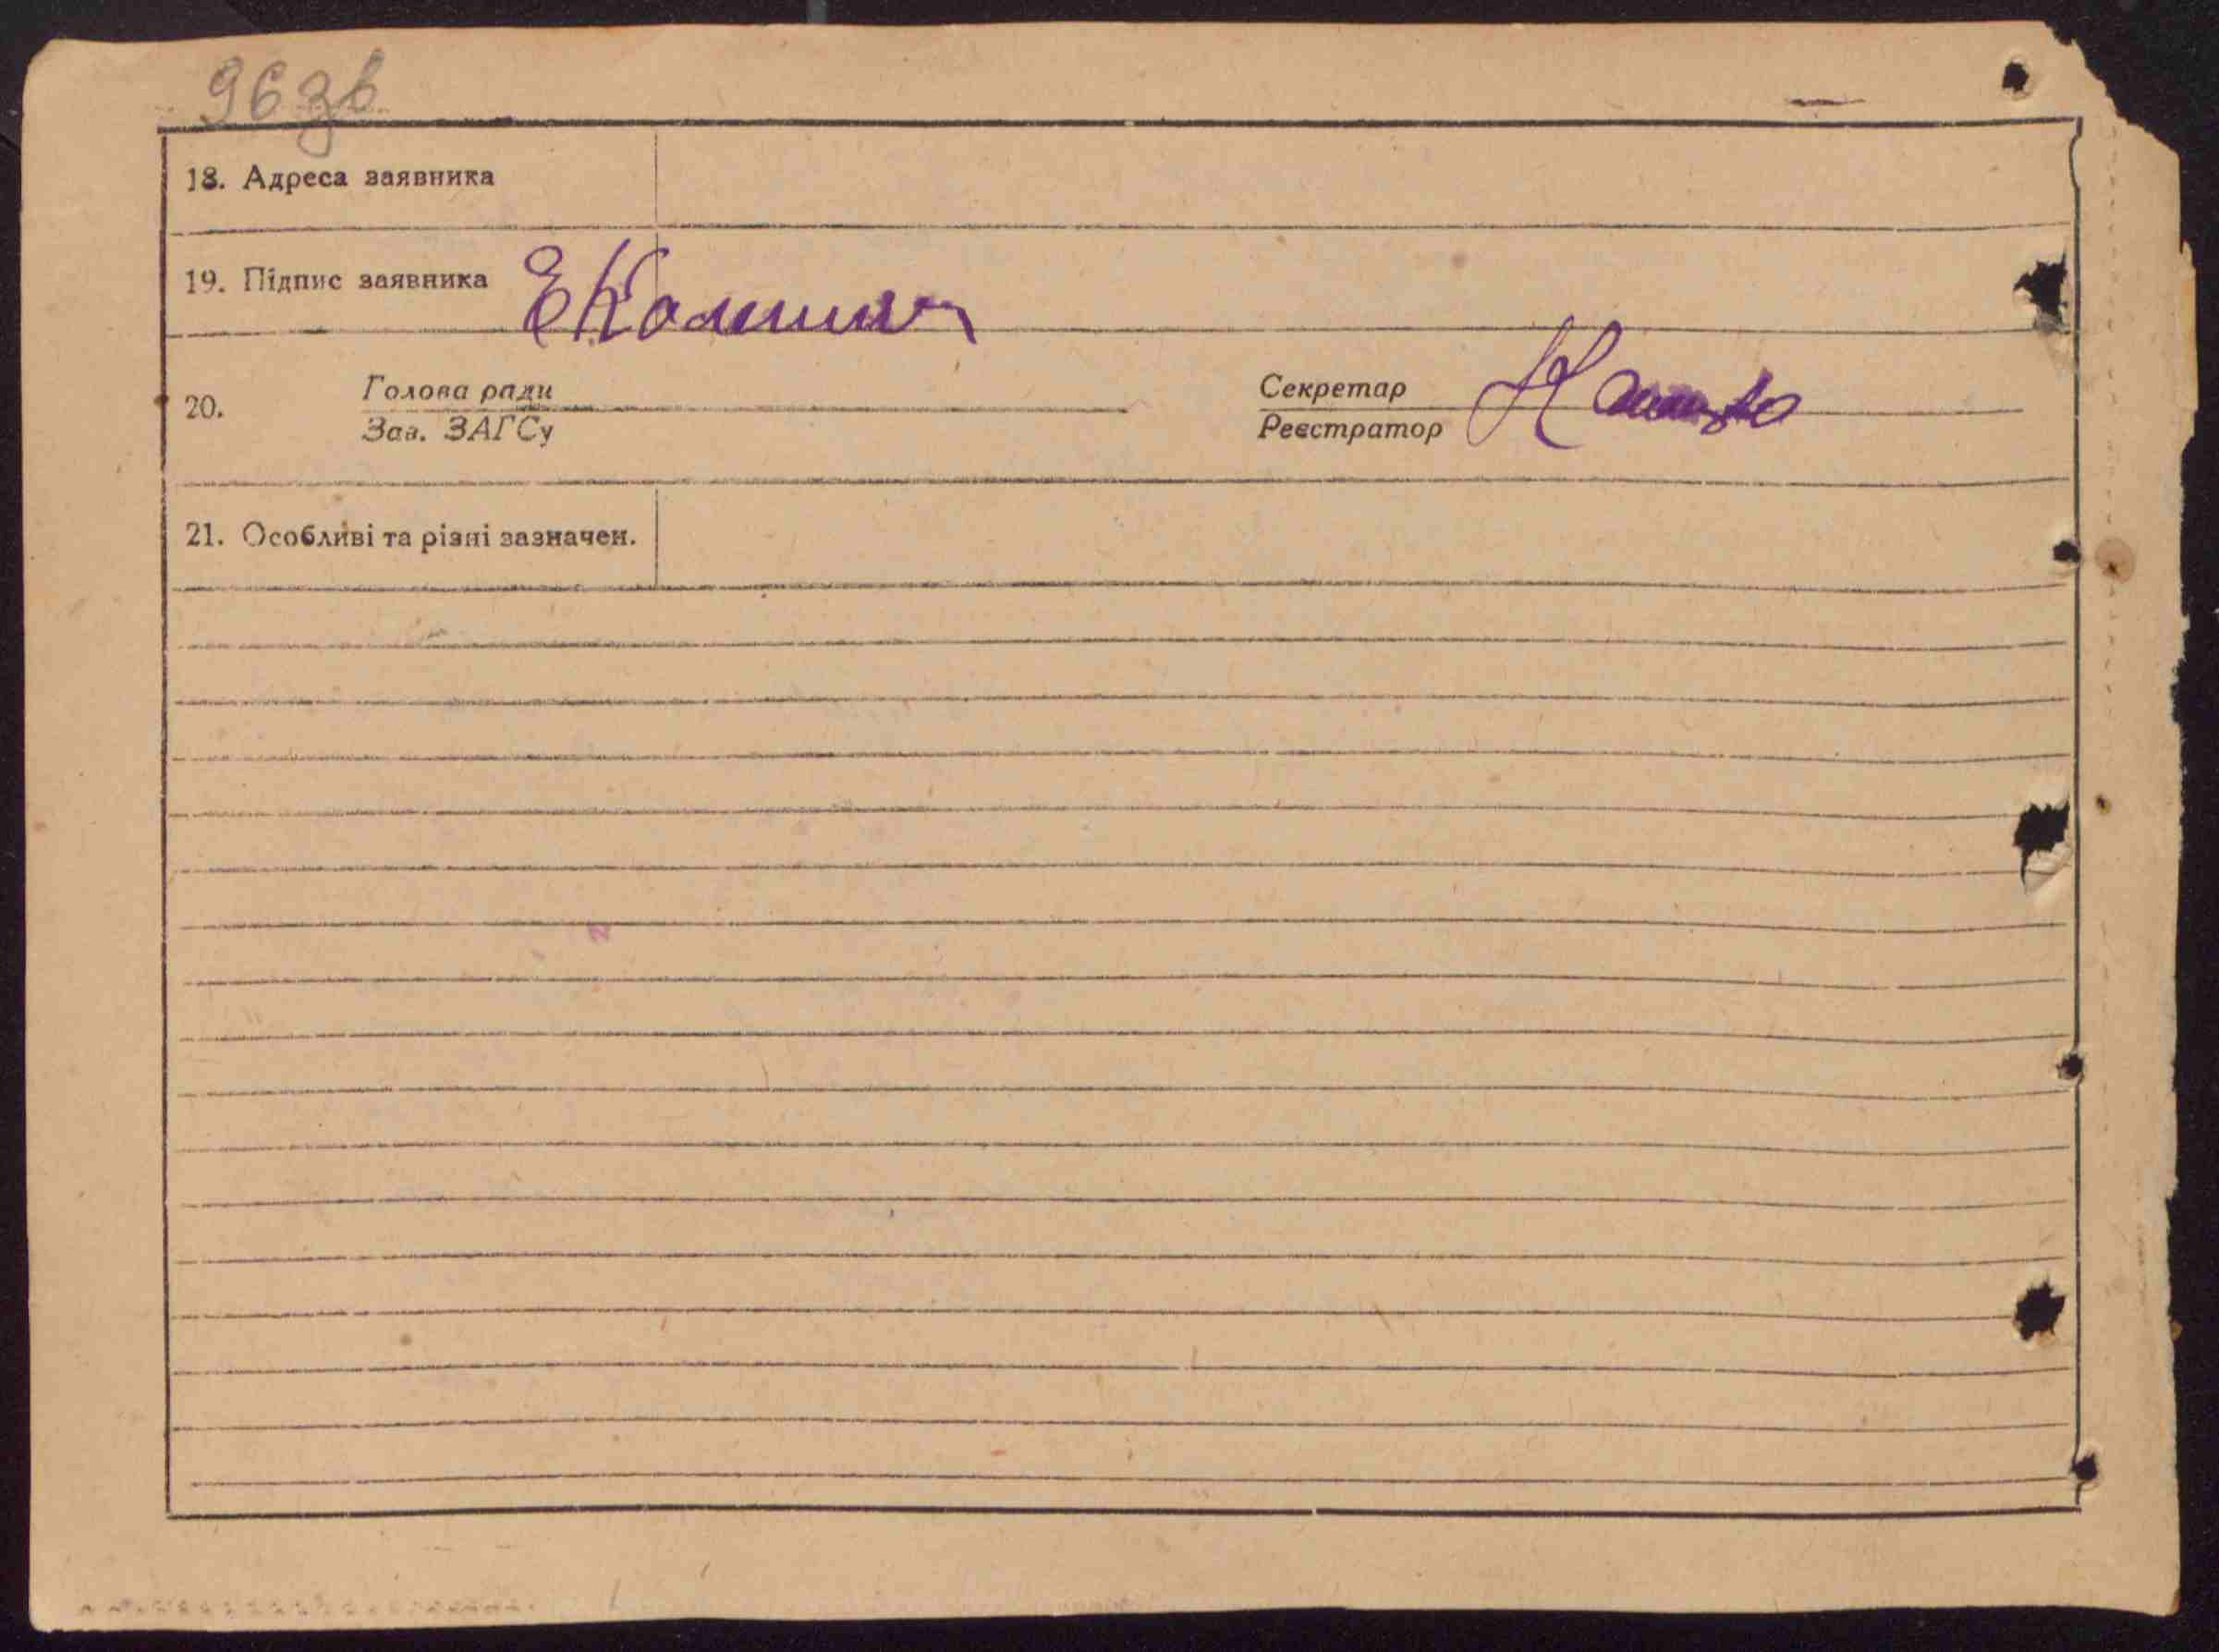 96 зв
18. Адреса заявника
19. Підпис заявника
20. Голова ради Секретар
Зав. ЗАГСу Реєстратор
21. Особливі та різні зазначен.